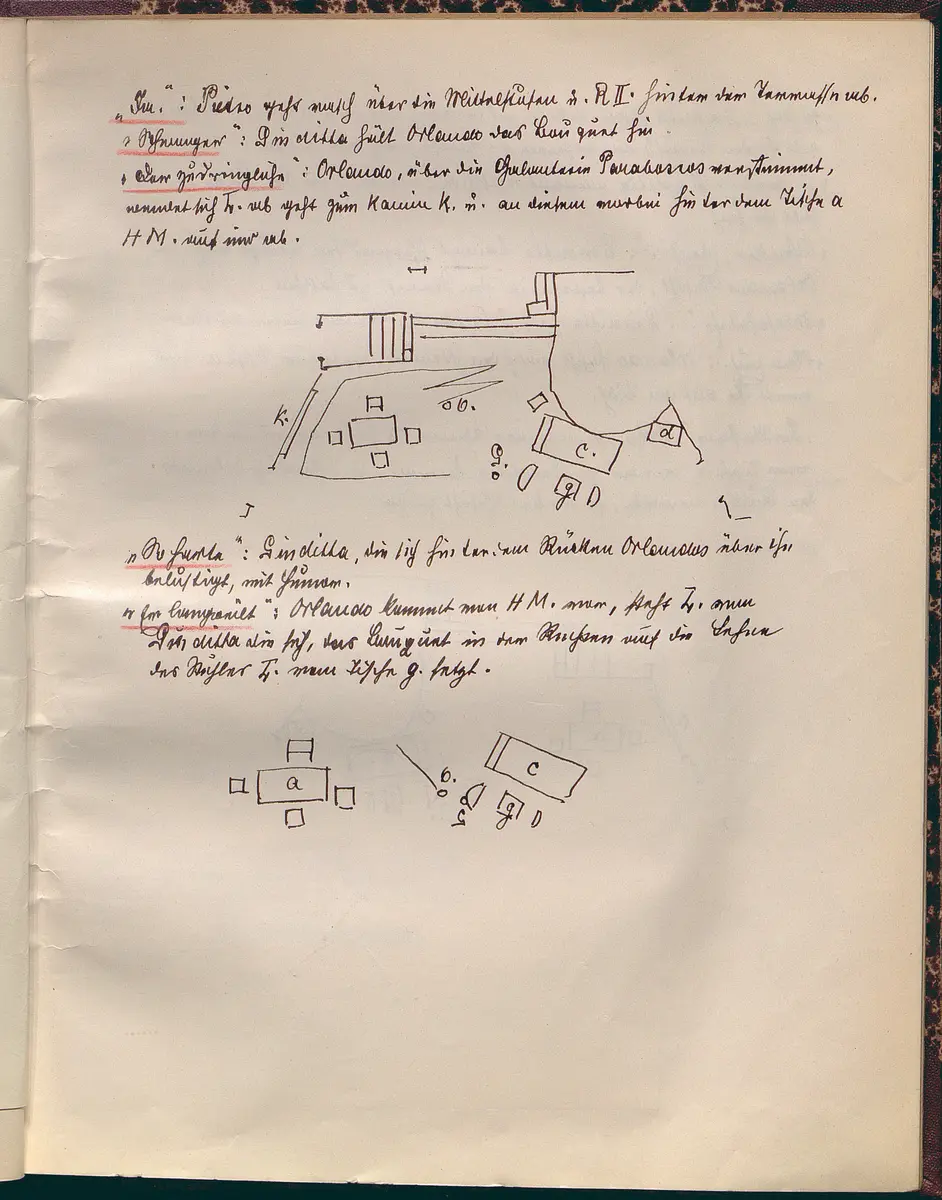 „Ja.“: Pietro geht rasch über die Mittelstufen u. R II. hinter der Terrasse ab.
„Schwanger“: Giuditta hält Orlando das Bouquet hin.
„Der zudringliche“: Orlando, über die Galanterie Parabascos verstimmt,
wendet sich L. ab geht zum Kamin K. u. an diesem vorbei hinter dem Tische a
H M. auf und ab.
K.
6.
5.
c.
d
g
„Scharte“: Giuditta, die sich hinter dem Rücken Orlandos über ihn
belustigt, mit Humor.
„Er langweilt“: Orlando kommt von H M. vor, steht L. von
Giuditta die sich, das Bouquet in den Händen auf die Lehne
des Stuhles L. vom Tische g. setzt.
a
6.
5
c
g